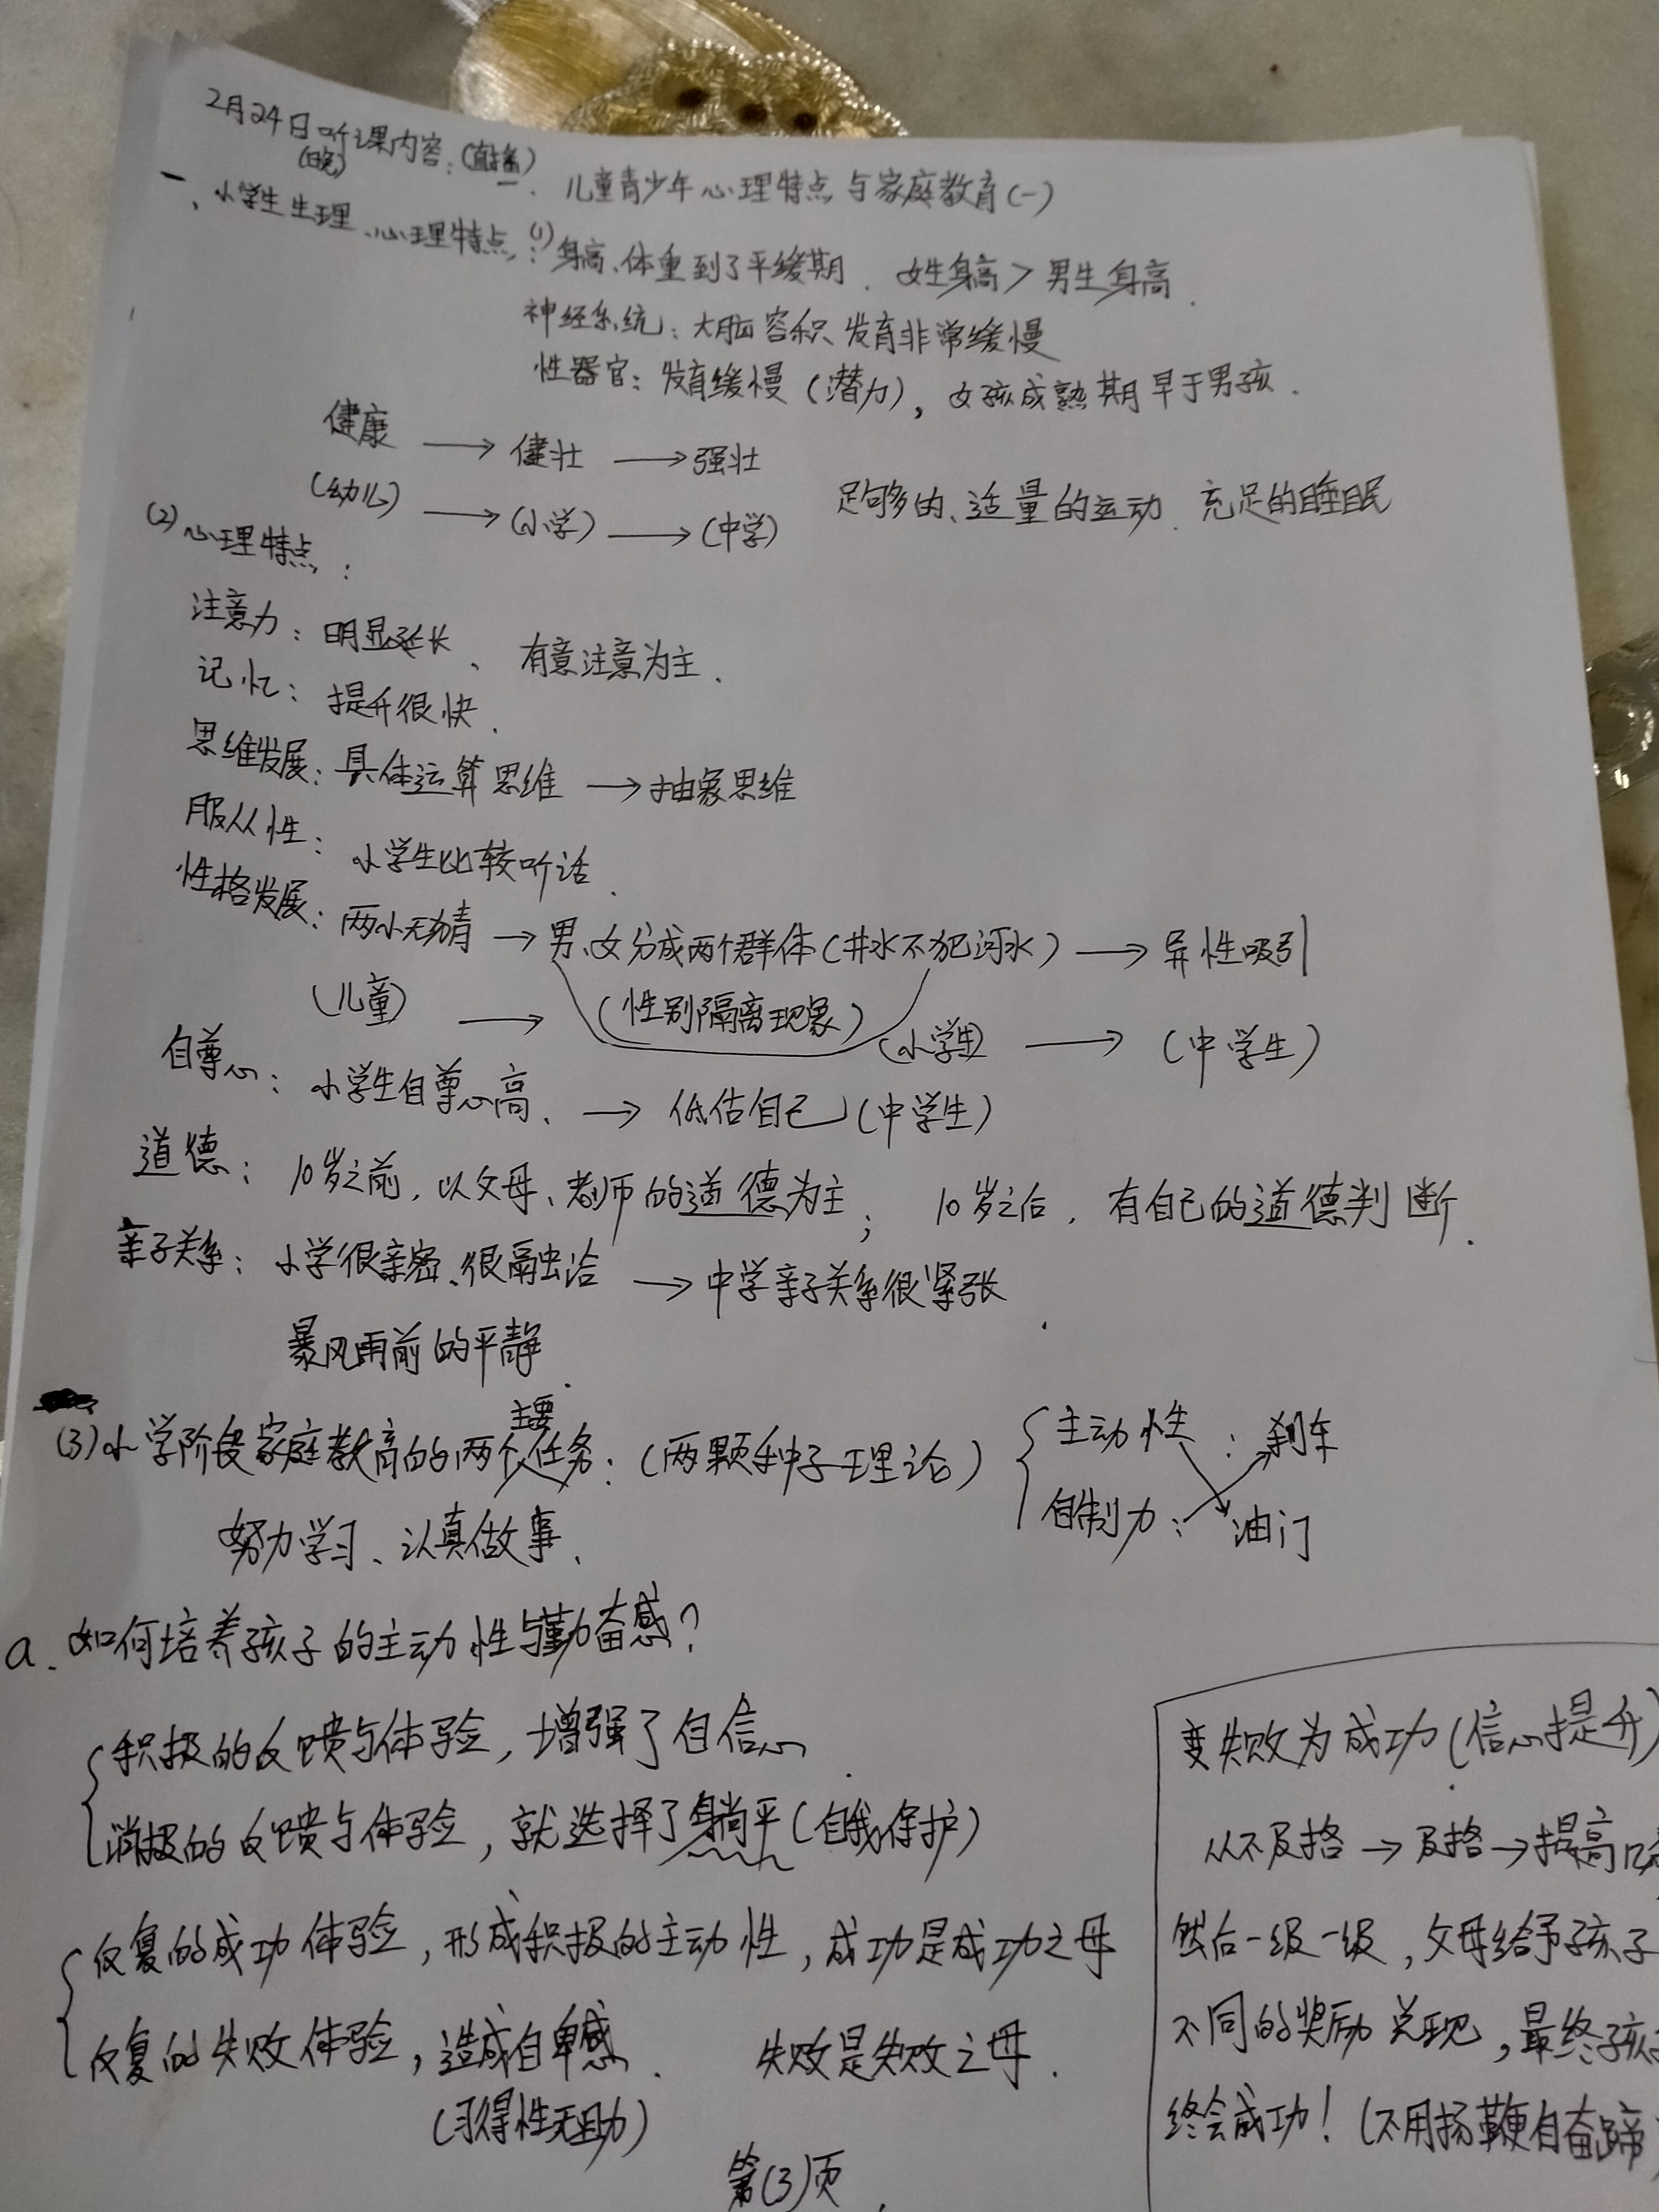 2月24日听课内容：（直播）
（晚）
一、儿童青少年心理特点与家庭教育（一）
一、小学生生理、心理特点：（1）身高、体重到了平缓期．女生身高＞男生身高．
神经系统：大脑容积发育非常缓慢
性器官：发育缓慢（潜力），女孩成熟期早于男孩．
健康 → 健壮 → 强壮
（幼儿） → （小学） → （中学） 足够多的、适量的运动．充足的睡眠
（2）心理特点：
注意力：明显延长、有意注意为主．
记忆：提升很快．
思维发展：具体运算思维 → 抽象思维
服从性：小学生比较听话．
性格发展：两小无猜 → 男、女分成两个群体（井水不犯河水） → 异性吸引
（儿童） → （性别隔离现象）（小学生） → （中学生）
自尊心：小学生自尊心高． → 低估自己（中学生）
道德：10岁之前，以父母、老师的道德为主；10岁之后，有自己的道德判断．
亲子关系：小学很亲密、很融洽 → 中学亲子关系很紧张．
暴风雨前的平静．
（3）小学阶段家庭教育的两个主要任务：（两颗种子理论） { 主动性：刹车
自制力：油门
努力学习、认真做事、
a．如何培养孩子的主动性与勤奋感？
{ 积极的反馈与体验，增强了自信心．
消极的反馈与体验，就选择了躺平（自我保护）
{ 反复的成功体验，形成积极的主动性，成功是成功之母
反复的失败体验，造成自卑感． 失败是失败之母．
（习得性无助）
变失败为成功（信心提升）
从不及格 → 及格 → 提高
然后一级一级，父母给予孩子
不同的奖励兑现，最终孩子
终会成功！（不用扬鞭自奋蹄）
第（3）页．